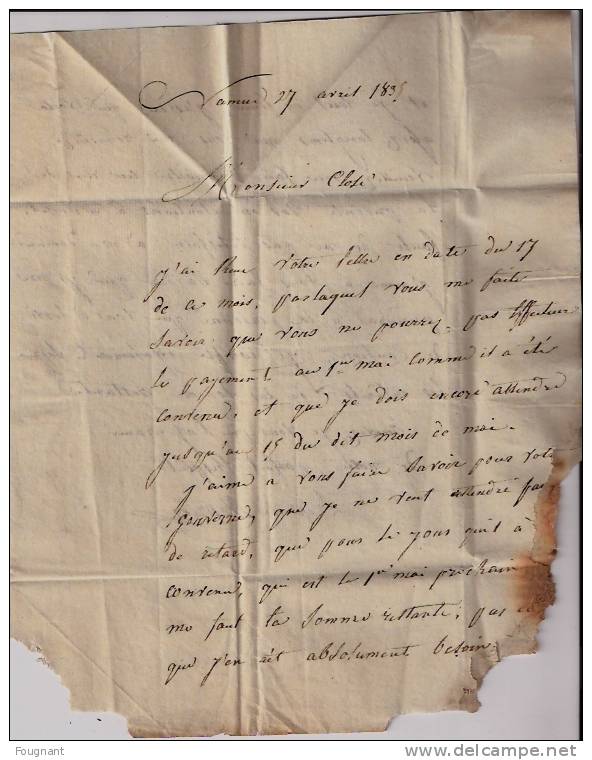 Namur 27 avril 1835
Monsieur Close
j'ai Reue votre lettre en date du 17
de ce mois, parlaquel vous me faite
savoir que vous ne pourrez pas Effectuer
le payement au 1er mai comme il a été
convenu, et que je dois encore attendre
jusqu'au 15 du dit mois de mai.
j'aime a vous faire savoir pour votre
gouverne, que je ne veut attendre pas
de retard, que pour le jour quil à
convenu, qui est le 1er mai prochain
me faut la somme restante, pas
que j'en ait absolument besoin.
Fougnant
delcampe.net